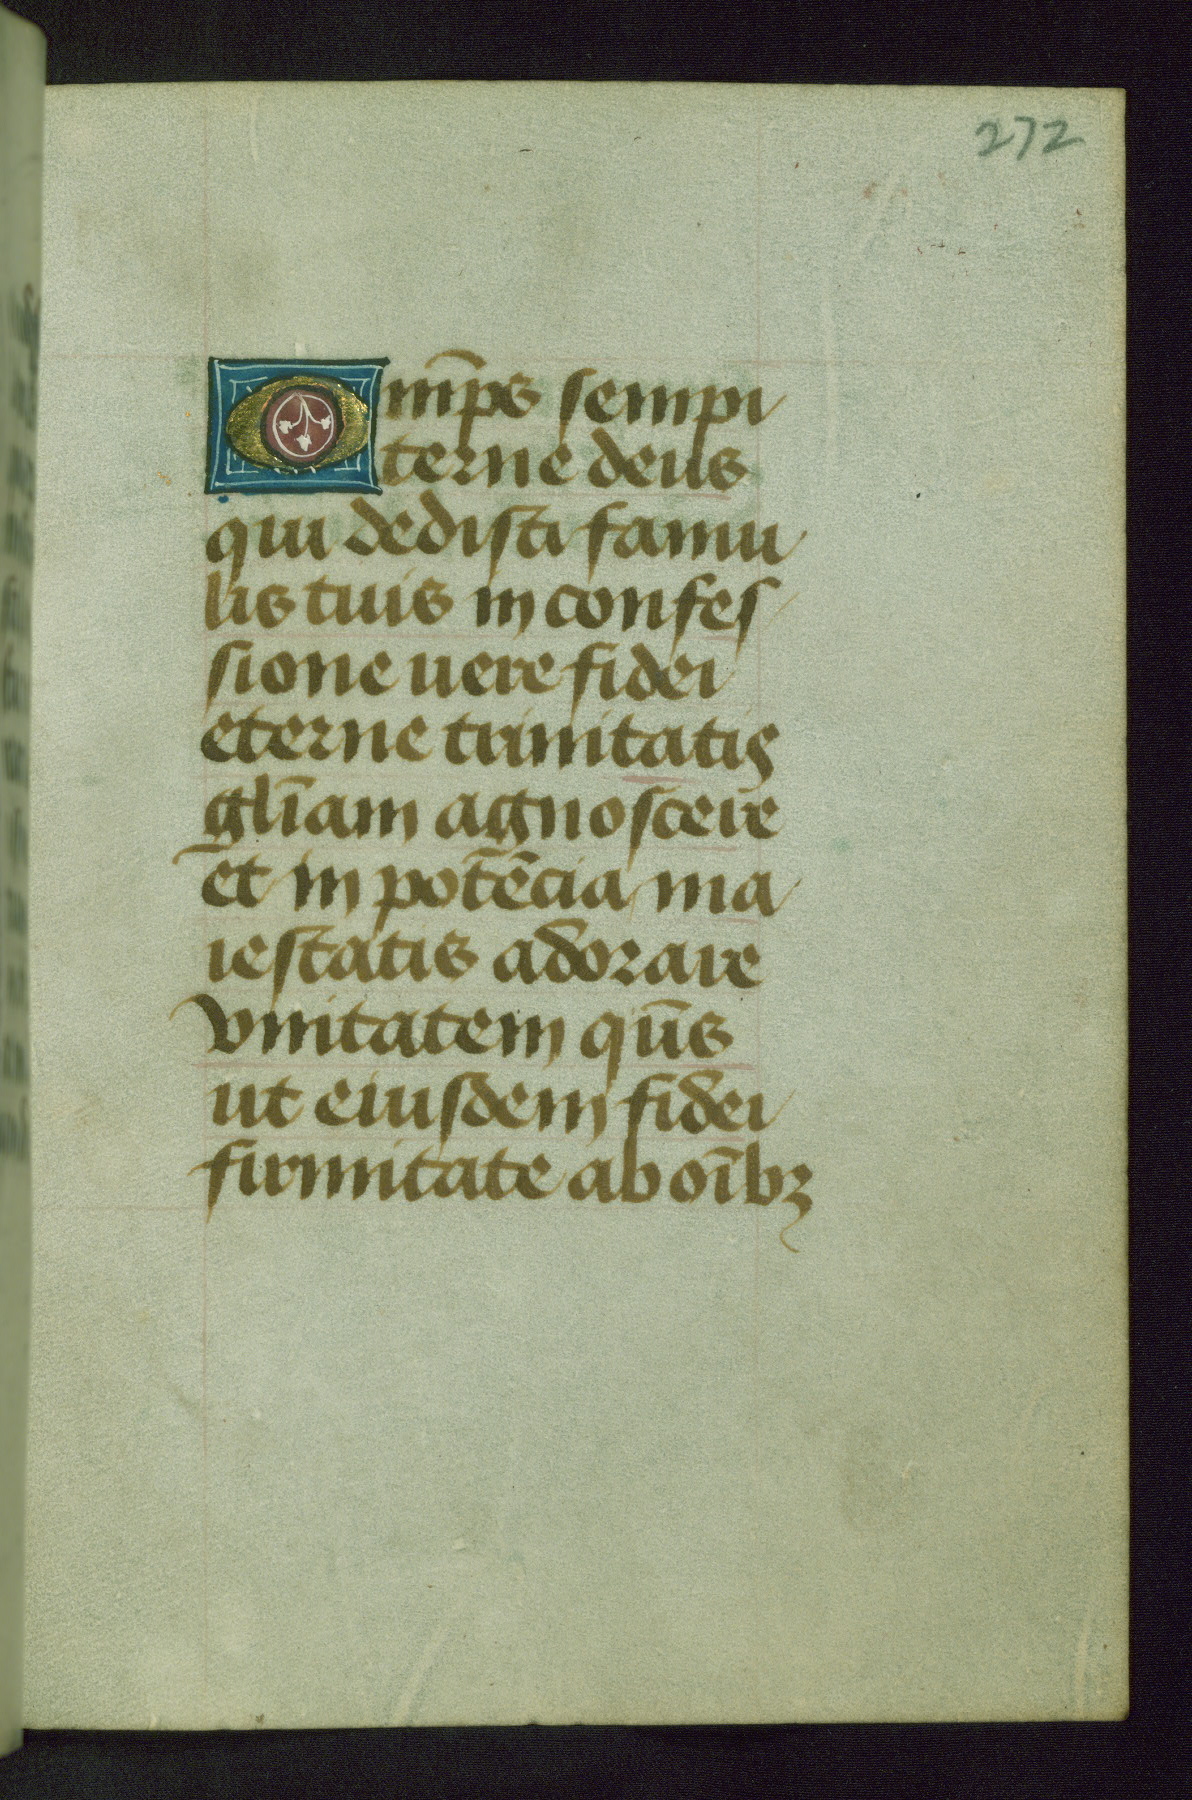 272
Om̄ps sempi
terne deus
qui dedisti famu
lis tuis in confes
sione uere fidei
eterne trinitatis
gl̄iam agnoscere
et in pot̄ēcia ma
iestatis adorare
vnitatem qūs
ut eiusdem fidei
firmitate ab oīb₃